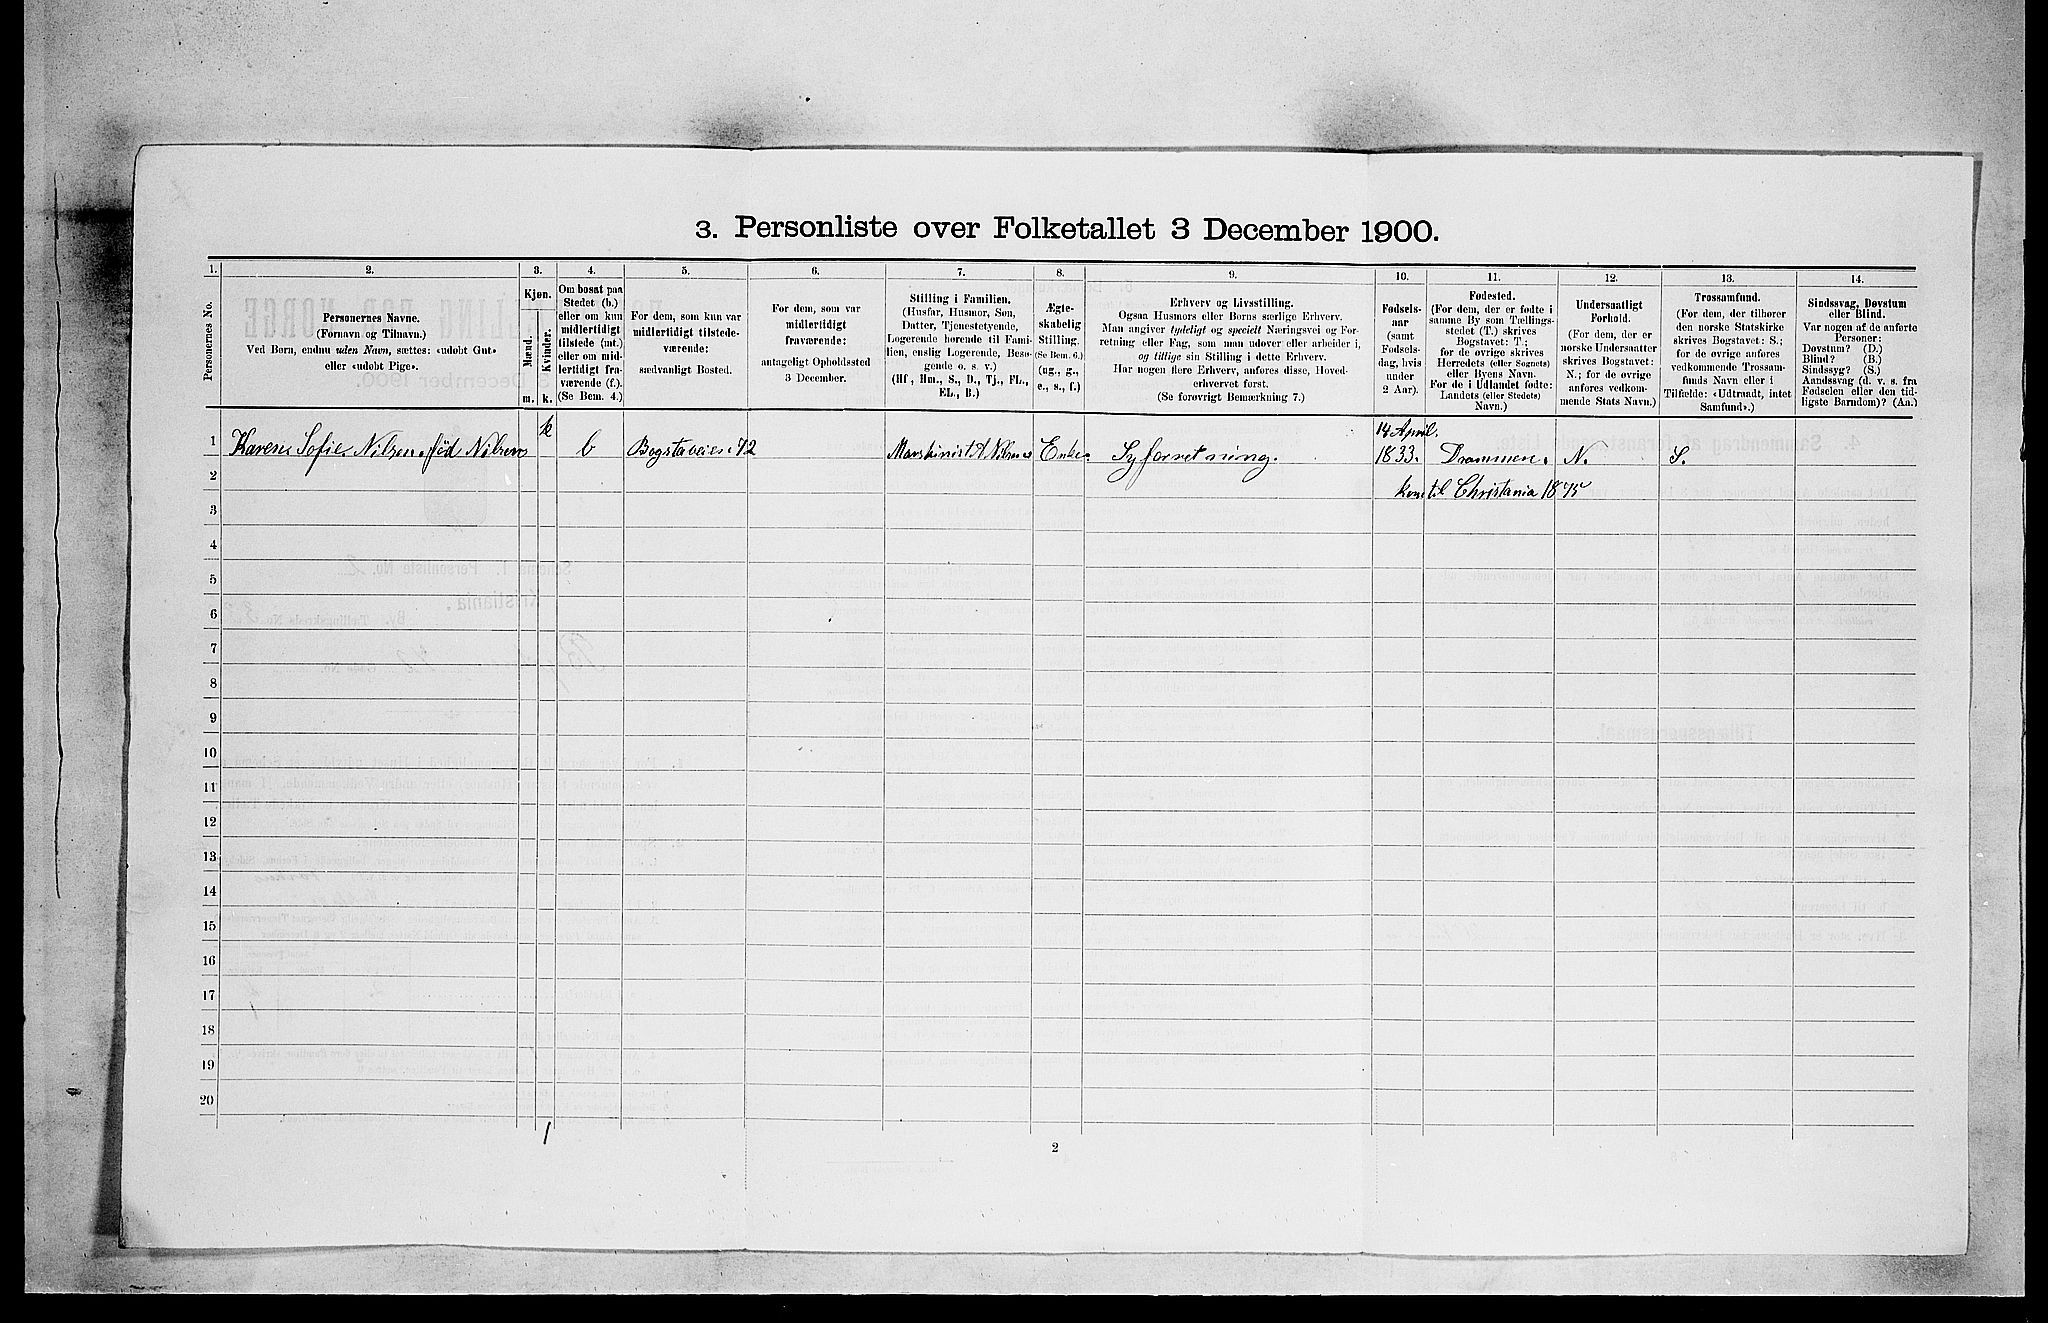 3. Personliste over Folketallet 3 December 1900.
1. 2. 3. 4. 5. 6. 7. 8. 9. 10. 11. 12. 13. 14.
Personernes No.
Personernes Navne.
(Fornavn og Tilnavn.)
Ved Børn, endnu uden Navn, sættes: «udøbt Gut»
eller «udøbt Pige».
Kjøn.
Mænd.
Kvinder.
m. k.
Om bosat paa
Stedet (b.)
eller om kun
midlertidigt
tilstede (mt.)
eller om mid-
lertidigt fra-
værende (f.).
(Se Bem. 4.)
For dem, som kun var
midlertidigt tilstede-
værende:
sædvanligt Bosted.
For dem, som var
midlertidigt
fraværende:
antageligt Opholdssted
3 December.
Stilling i Familien.
(Husfar, Husmor, Søn,
Datter, Tjenestetyende,
Logerende hørende til Fami-
lien, enslig Logerende, Besø-
gende o. s. v.)
(Hf., Hm., S., D., Tj., FL.,
EL., B.)
Ægte-
skabelig
Stilling.
(Se Bem. 6.)
(ug., g.,
e., s., f.)
Erhverv og Livsstilling.
Ogsaa Husmors eller Børns særlige Erhverv.
Man angiver tydeligt og specielt Næringsvei og For-
retning eller Fag, som man udøver eller arbeider i,
og tillige sin Stilling i dette Erhverv.
Har nogen flere Erhverv, anføres disse, Hoved-
erhvervet først.
(Se forøvrigt Bemærkning 7.)
Fødsels-
aar
(samt
Fødsels-
dag, hvis
under
2 Aar).
Fødested.
(For dem, der er fødte i
samme By som Tællings-
stedet (T.) skrives
Bogstavet: T.;
for de øvrige skrives
Herredets (eller Sognets)
eller Byens Navn.
For de i Udlandet fødte:
Landets (eller Stedets)
Navn.)
Undersaatligt
Forhold.
(For dem, der er
norske Undersaatter
skrives Bogstavet:
N.; for de øvrige
anføres vedkom-
mende Stats Navn.)
Trossamfund.
(For dem, der tilhører
den norske Statskirke
skrives Bogstavet: S.;
for de øvrige anføres
vedkommende Trossam-
funds Navn eller i
Tilfælde: «Udtraadt, intet
Samfund».)
Sindssvag, Døvstum
eller Blind.
Var nogen af de anførte
Personer:
Døvstum? (D.)
Blind? (B.)
Sindssyg? (S.)
Aandssvag (d. v. s. fra
Fødselen eller den tid-
ligste Barndom)? (Aa.)
k 14 April.
1 Karen Sofie Nilsen. fød Nilsen b Bogstaveien 42 Maschinist A Nilsens Enke. Syforretning. 1833. Drammen. N. S.
2 kom til Christania 1875
3
4
5
6
7
8
9
10
11
12
13
14
15
16
17
18
19
20
1
2